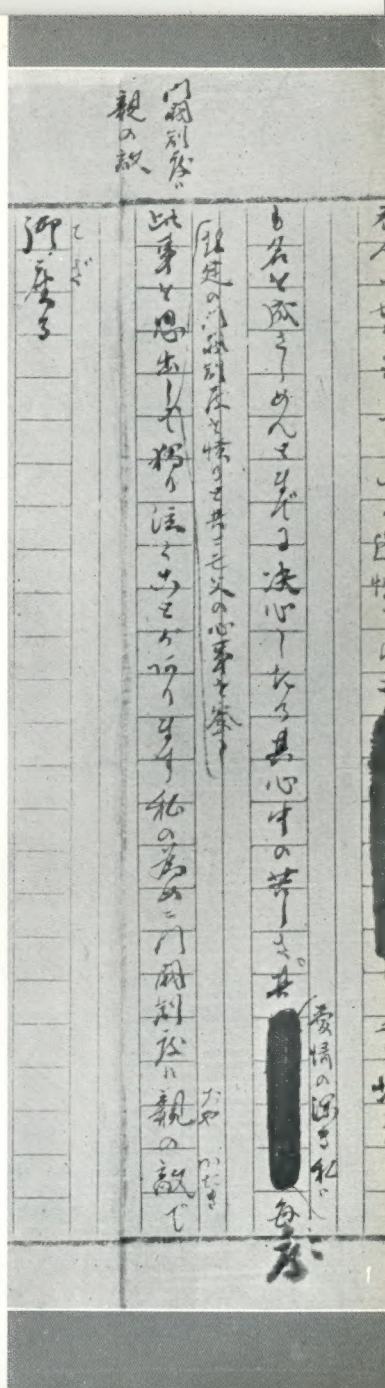 門閥制度ハ
親の敵
も名を成さしめんとまでに決心したる其心中の苦しさ。其
愛情の深き私ハ
毎度
封建の門閥制度を憤ると共ニ亡父の心事を察して
此事を思出し独り泣くことがあります私の為めニ門閥制度ハ親の敵で
おや かたき
御座る
ござ